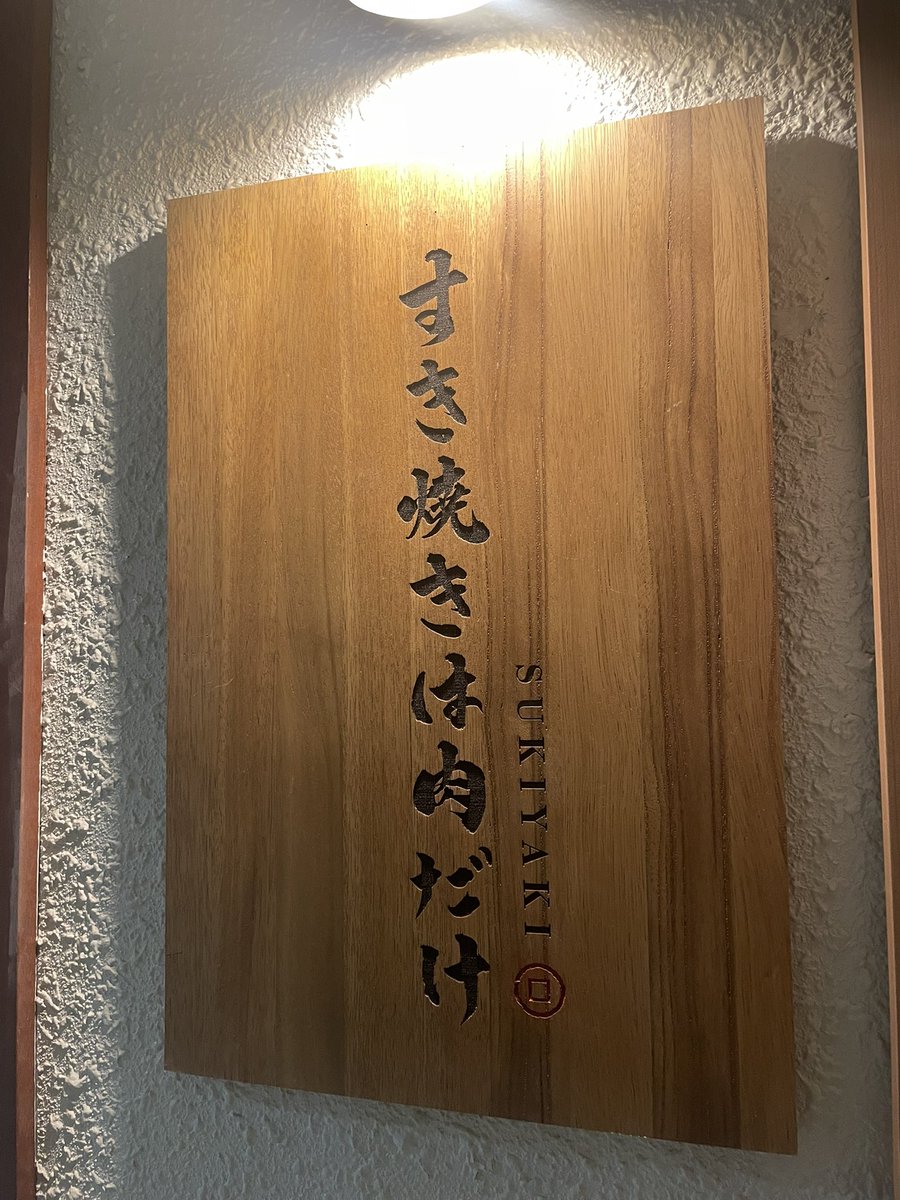 すき焼きは肉だけ
SUKIYAKI